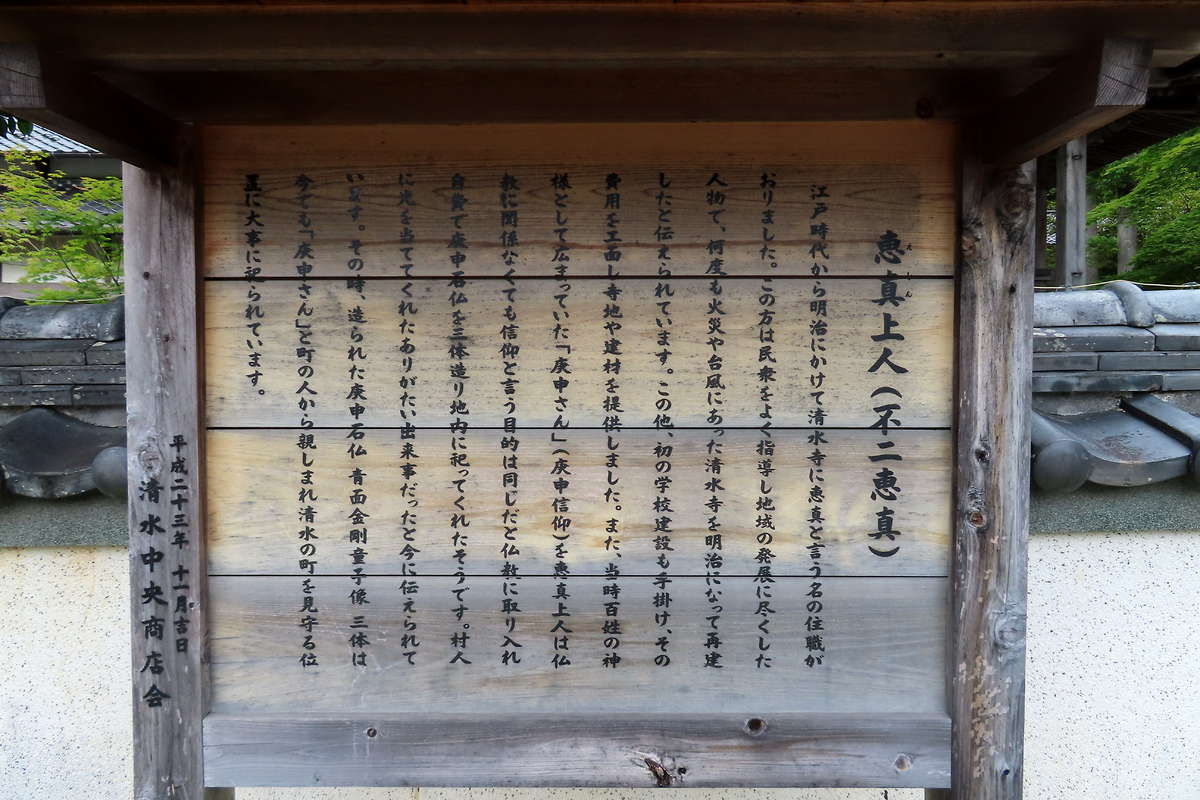 恵真上人（不二恵真）
えしん
江戸時代から明治にかけて清水寺に恵真と言う名の住職が
おりました。この方は民衆をよく指導し地域の発展に尽くした
人物で、何度も火災や台風にあった清水寺を明治になって再建
したと伝えられています。この他、初の学校建設も手掛け、その
費用を工面し寺地や建材を提供しました。また、当時百姓の神
様として広まっていた「庚申さん」（庚申信仰）を恵真上人は仏
教に関係なくても信仰と言う目的は同じだと仏教に取り入れ
自費で庚申石仏を三体造り地内に祀ってくれたそうです。村人
に光を当ててくれたありがたい出来事だったと今に伝えられて
います。その時、造られた庚申石仏 青面金剛童子像 三体は
今でも「庚申さん」と町の人から親しまれ清水の町を見守る位
置に大事に祀られています。
平成二十三年 十一月吉日
清水中央商店会